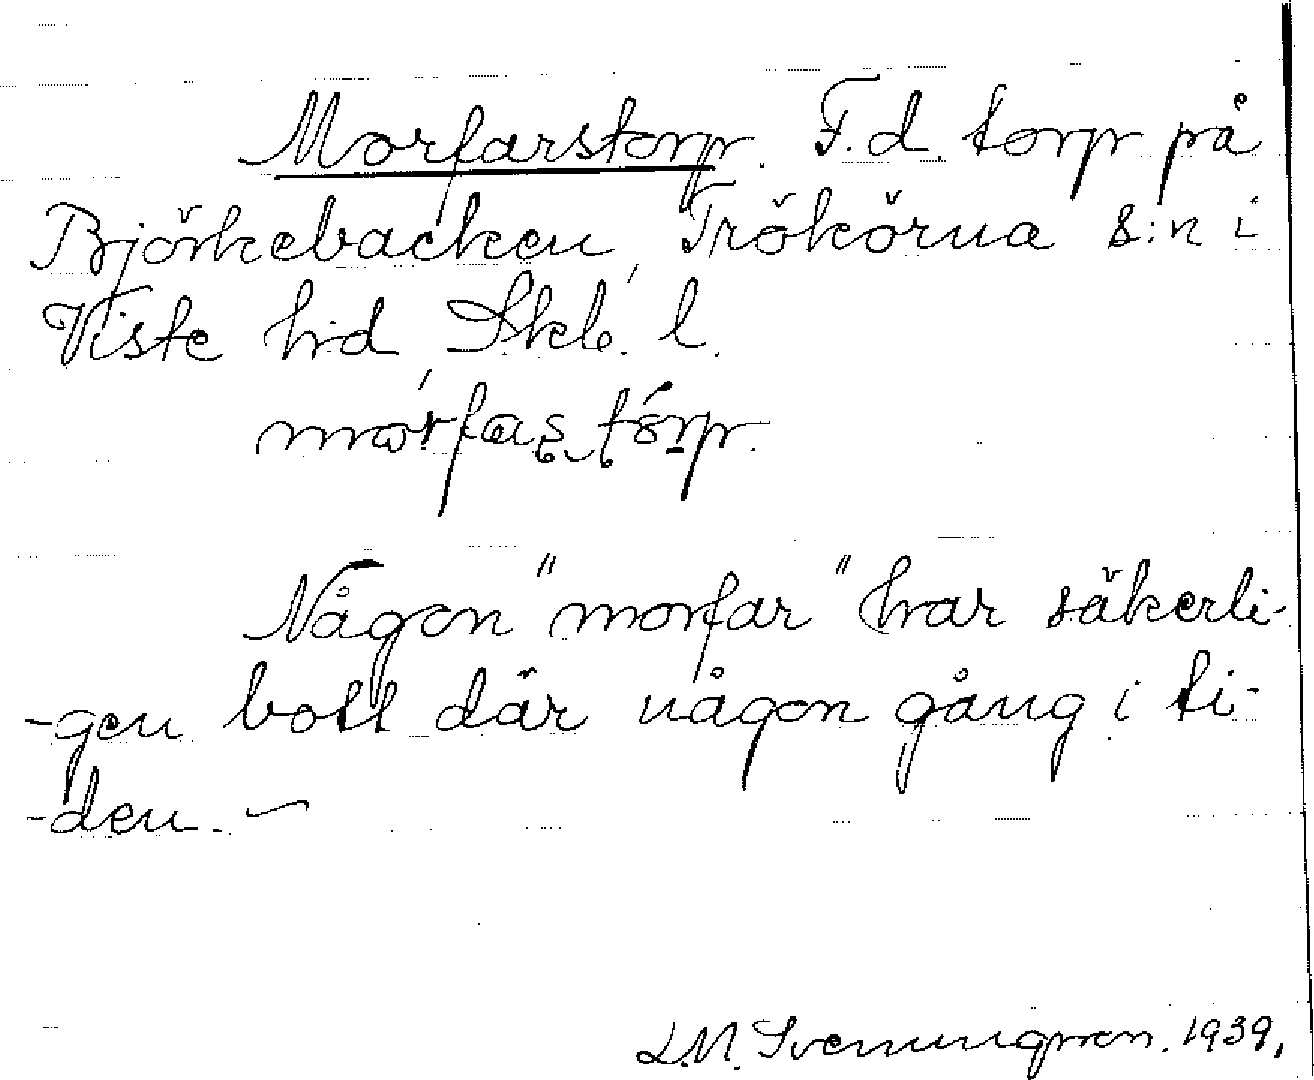 Morfarstorp. F.d. torp på
Björkebacken, Trökörna s:n i
Viste hd Skb. l.
mórfas tórp.
Någon "morfar" har säkerli-
-gen bott där någon gång i ti-
-den. –
L.M. Svenungsson. 1939.